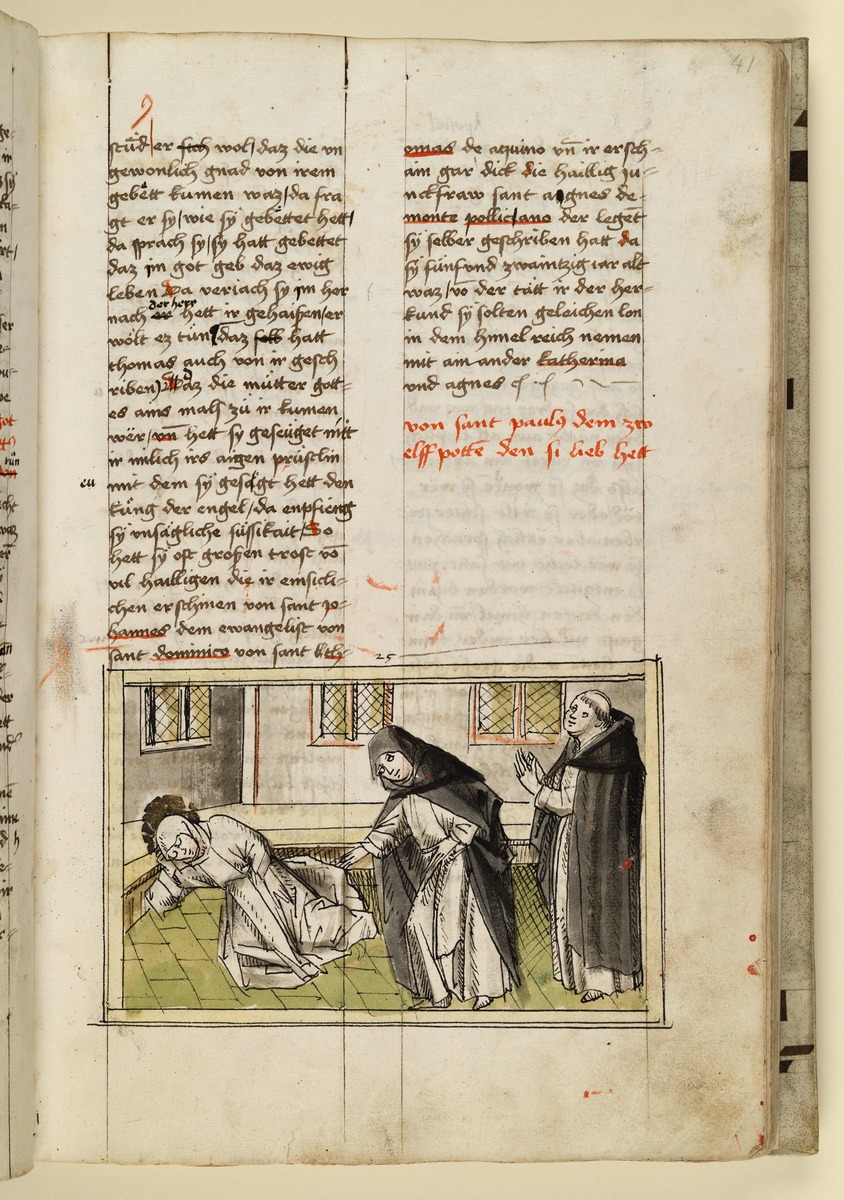 41
stuͤnd er sich wol / daz die vn
gewonlich gnad von irem
gebett kumen waz / da fra
gt er sy / wie sy gebettet hett /
da sprach sy / sy hatt gebettet
daz im got geb daz ewig
leben Da veriach sy im her
nach der herr er hett ir gehaißen / er
woͤlt ez tuͤn / daz selb hatt
thomas auch von ir gesch
riben) Daz die muͤtter gott⸗
es ains mals zuͤ ir kumen
wer / vn̄ hett sy geseuͤget mitt
ir milich irs aigen pruͤstlin
eu
mit dem sy gesaͤgt hett den
kuͤng der engel / da enpfieng
sy vnsaͤgliche suͤssikait / So
hett sy oft großen trost vō
vil hailligen die ir einsicli⸗
chen erschinen von sant jo⸗
hannes dem ewangelist von
sant dominico von sant th⸗
omas de aquino vn̄ ir ersch⸗
ain gar dick die haillig ju⸗
nckfraw sant agnes de⸗
monte polliciano der legēt
sy selber geschriben hatt da
sy fuͤnfund zwaintzig iar alt
waz / vō der taͤtt ir der her⸗
kund sy solten geleichen lon
in dem himel reich nemen
mit ain ander katherina
vnd agnes
von sant paulꝰ dem zw
elff potten den si lieb hett
25